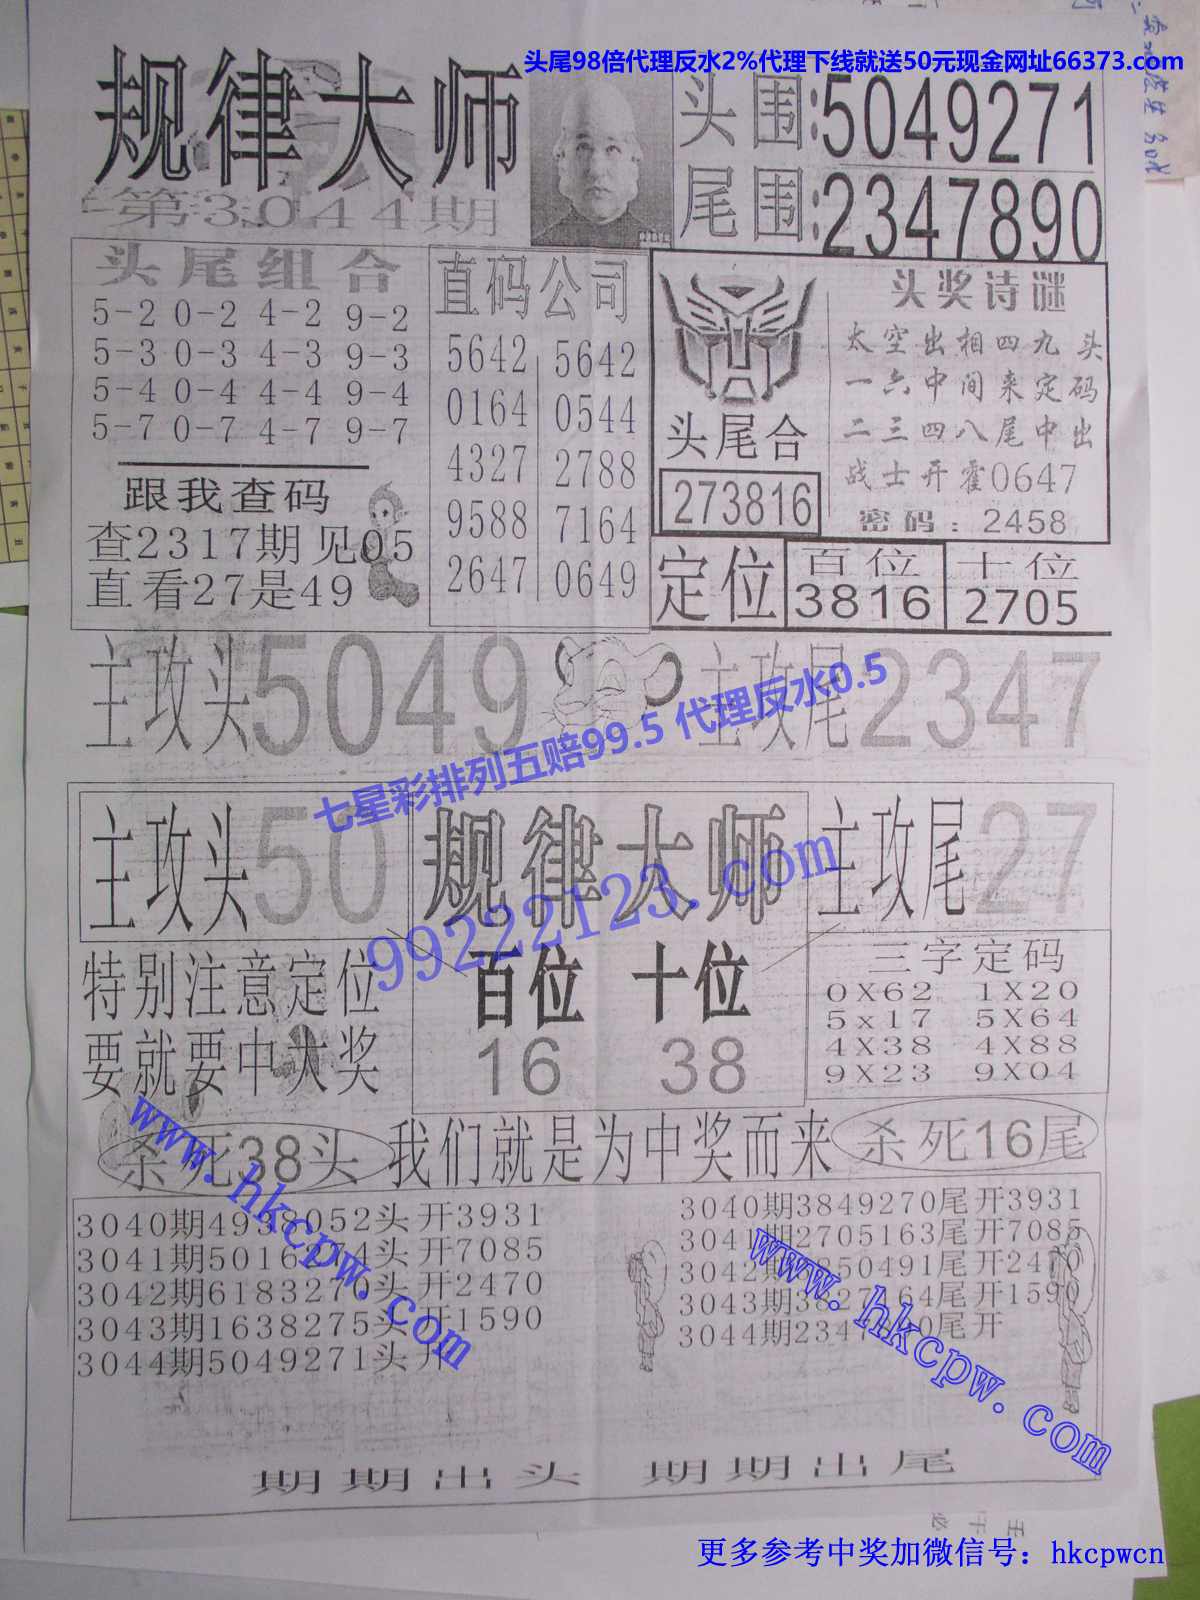 头尾98倍代理反水2%代理下线就送50元现金网址66373.com
规律大师
第3044期
头围:5049271
尾围:2347890
头尾组合
5-2 0-2 4-2 9-2
5-3 0-3 4-3 9-3
5-4 0-4 4-4 9-4
5-7 0-7 4-7 9-7
跟我查码
查2317期见05
直看27是49
直码公司
5642 5642
0164 0544
4327 2788
9588 7164
2647 0649
头尾合
273816
头奖诗谜
太空出相四九头
一六中间来定码
二三四八尾中出
战士开霍0647
密码：2458
定位
百位
3816
十位
2705
主攻头5049
主攻尾2347
七星彩排列五赔99.5 代理反水0.5
主攻头50
规律大师
主攻尾27
99222123.com
特别注意定位
要就要中大奖
百位 十位
16 38
三字定码
0X62 1X20
5x17 5X64
4X38 4X88
9X23 9X04
杀死38头
我们就是为中奖而来
杀死16尾
www.hkcpw.com
3040期4938052头开3931
3041期5016274头开7085
3042期6183270头开2470
3043期1638275头开1590
3044期5049271头开
www.hkcpw.com
3040期3849270尾开3931
3041期2705163尾开7085
3042期 250491尾开2470
3043期3827164尾开1590
3044期2347890尾开
期期出头 期期出尾
更多参考中奖加微信号：hkcpwcn